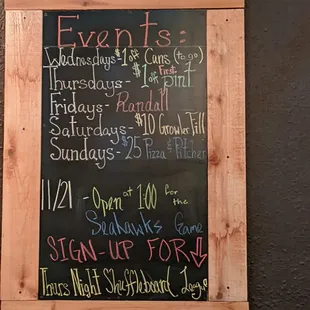 Events:
Wednesdays- $1 off Cans (to go)
Thursdays- $1 off First pint
Fridays- Randall
Saturdays- $10 Growler Fill
Sundays- $25 Pizza & Pitcher
11/21 - Open at 1:00 for the
Seahawks Game
SIGN-UP FOR
Thurs Night Shuffleboard League